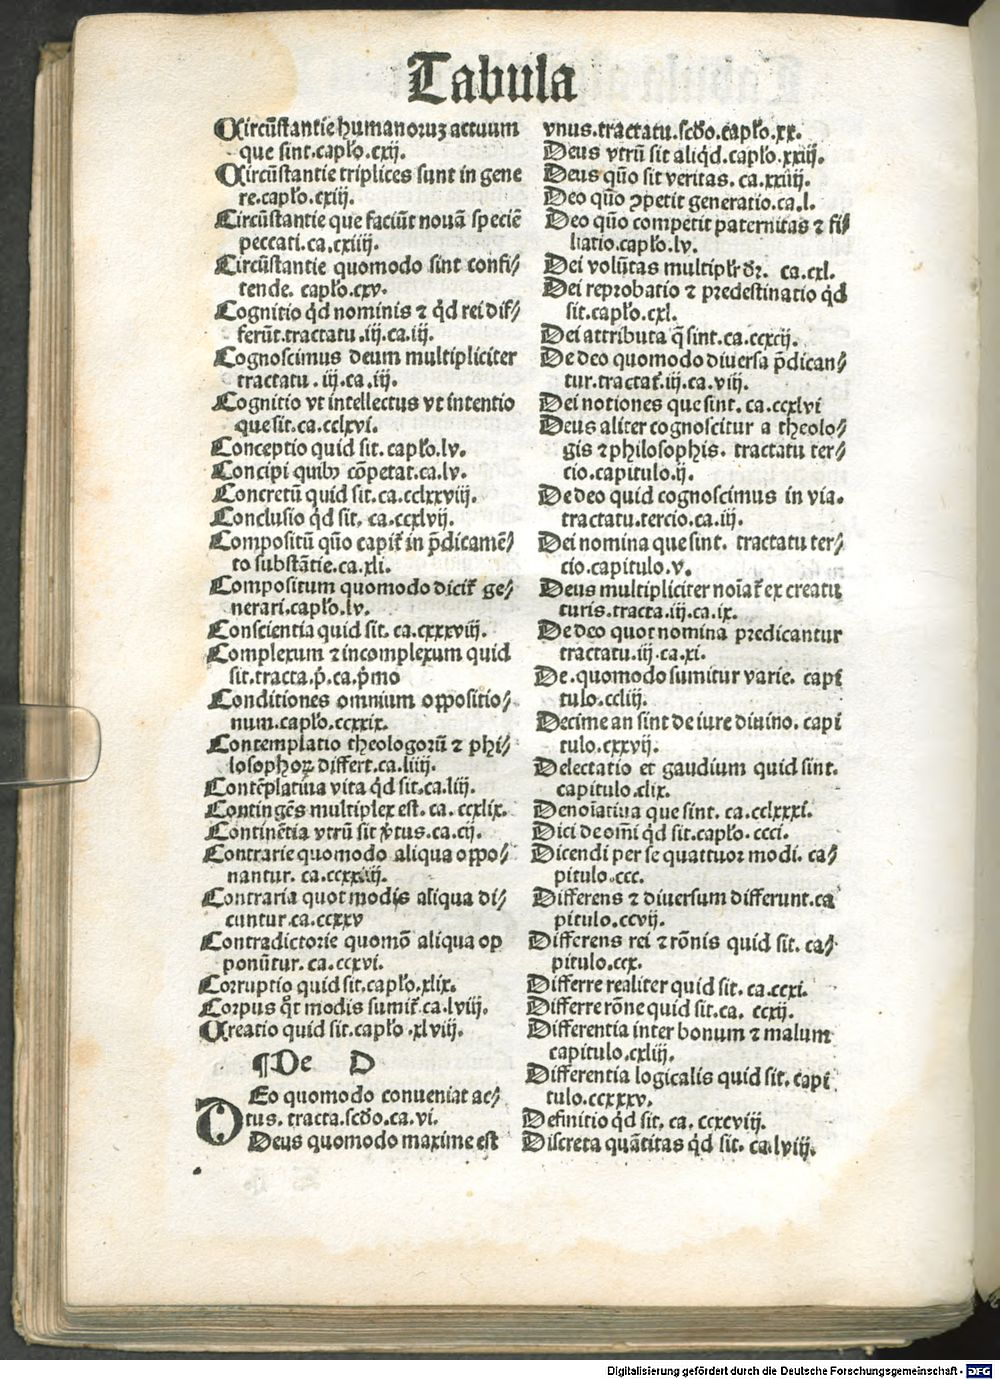 Tabula
Circūstantie humanoruʒ actuum
que sint.capło.cxij.
Circūstantie triplices sunt in gene
re.capło.cxiij.
Circūstantie que faciūt nouā speciē
peccati.ca.cxiiij.
Circūstantie quomodo sint confi⸗
tende. capło.cxv.
Cognitio qd̄ nominis ⁊ qd̄ rei dif⸗
ferūt.tractatu.iij.ca.iij.
Cognoscimus deum multipliciter
tractatu.iij.ca.iij.
Cognitio vt intellectus vt intentio
que sit.ca.cclxvi.
Conceptio quid sit.capło.lv.
Concipi quibꝰ cōpetat.ca.lv.
Concretū quid sit.ca.cclxxviij.
Conclusio qd̄ sit. ca.ccxlvij.
Compositū quō capit᷑ in p̄dicamē⸗
to substātie.ca.xli.
Compositum quomodo dicit᷑ ge⸗
nerari.capło.lv.
Conscientia quid sit. ca.cxxxviij.
Complexum ⁊ incomplexum quid
sit.tracta.p̄.ca.p̄mo
Conditiones omnium oppositio⸗
num.capło.ccxxix.
Contemplatio theologorū ⁊ phi⸗
losophoꝝ differt.ca.liiij.
Contēplatiua vita qd̄ sit.ca.liij.
Contingēs multiplex est. ca. ccxlix.
Continētia vtrū sit v̓tus.ca.cij.
Contrarie quomodo aliqua oppo⸗
nantur.
Contraria quot modis aliqua di⸗
cuntur.ca.ccxxv
Contradictorie quomō aliqua op
ponūtur. ca.ccxvi.
Corruptio quid sit.capło.xlix.
Corpus qͦt modis sumit᷑.ca.lviij.
Creatio quid sit.capło.xlviij.
¶De D
DEo quomodo conueniat ac⸗
tus. tracta.scdo.ca.vi.
Deus quomodo maxime est
vnus.tractatu.scdo.capło.xx.
Deus vtrū sit aliqd̄.capło.xxiij.
Deus quō sit veritas. ca.xxiiij.
Deo quō ꝯpetit generatio.ca.l.
Deo quō competit paternitas ⁊ fi⸗
liatio.capło.lv.
Dei volūtas multipłr dr̄. ca.cxl.
Dei reprobatio ⁊ predestinatio qd̄
sit.capło.cxl.
Dei attributa q̄ sint.ca.ccxcij.
De deo quomodo diuersa p̄dican⸗
tur.tractat᷑.iij.ca.viij.
Dei notiones que sint. ca.ccxlvi
Deus aliter cognoscitur a theolo⸗
gis ⁊ philosophis. tractatu ter⸗
cio.capitulo.ij.
De deo quid cognoscimus in via.
tractatu.tercio.ca.iij.
Dei nomina que sint. tractatu ter⸗
cio.capitulo.v.
Deus multipliciter noīat᷑ ex creatu
turis.tracta.iij.ca.ix.
De deo quot nomina predicantur
tractatu.iij.ca.xi.
De.quomodo sumitur varie. capi
tulo.ccliij.
Decime an sint de iure diuino. capi
tulo.cxxvij.
Delectatio et gaudium quid sint.
capitulo.clix.
Denoīatiua que sint. ca.cclxxxi.
Dici de omī qd̄ sit.capło.ccci.
Dicendi per se quattuor modi. ca⸗
pitulo.ccc.
Differens ⁊ diuersum differunt.ca
pitulo.ccvij.
Differens rei ⁊ rōnis quid sit. ca⸗
pitulo.ccx.
Differre realiter quid sit. ca.ccxi.
Differre rōne quid sit.ca. ccxij.
Differentia inter bonum ⁊ malum
capitulo.cxliij.
Differentia logicalis quid sit. capi
tulo.ccxxxv.
Definitio qd̄ sit. ca. ccxcviij.
Discreta quātitas qd̄ sit. ca.lviij.
Digitalisierung gefördert durch die Deutsche Forschungsgemeinschaft - DFG